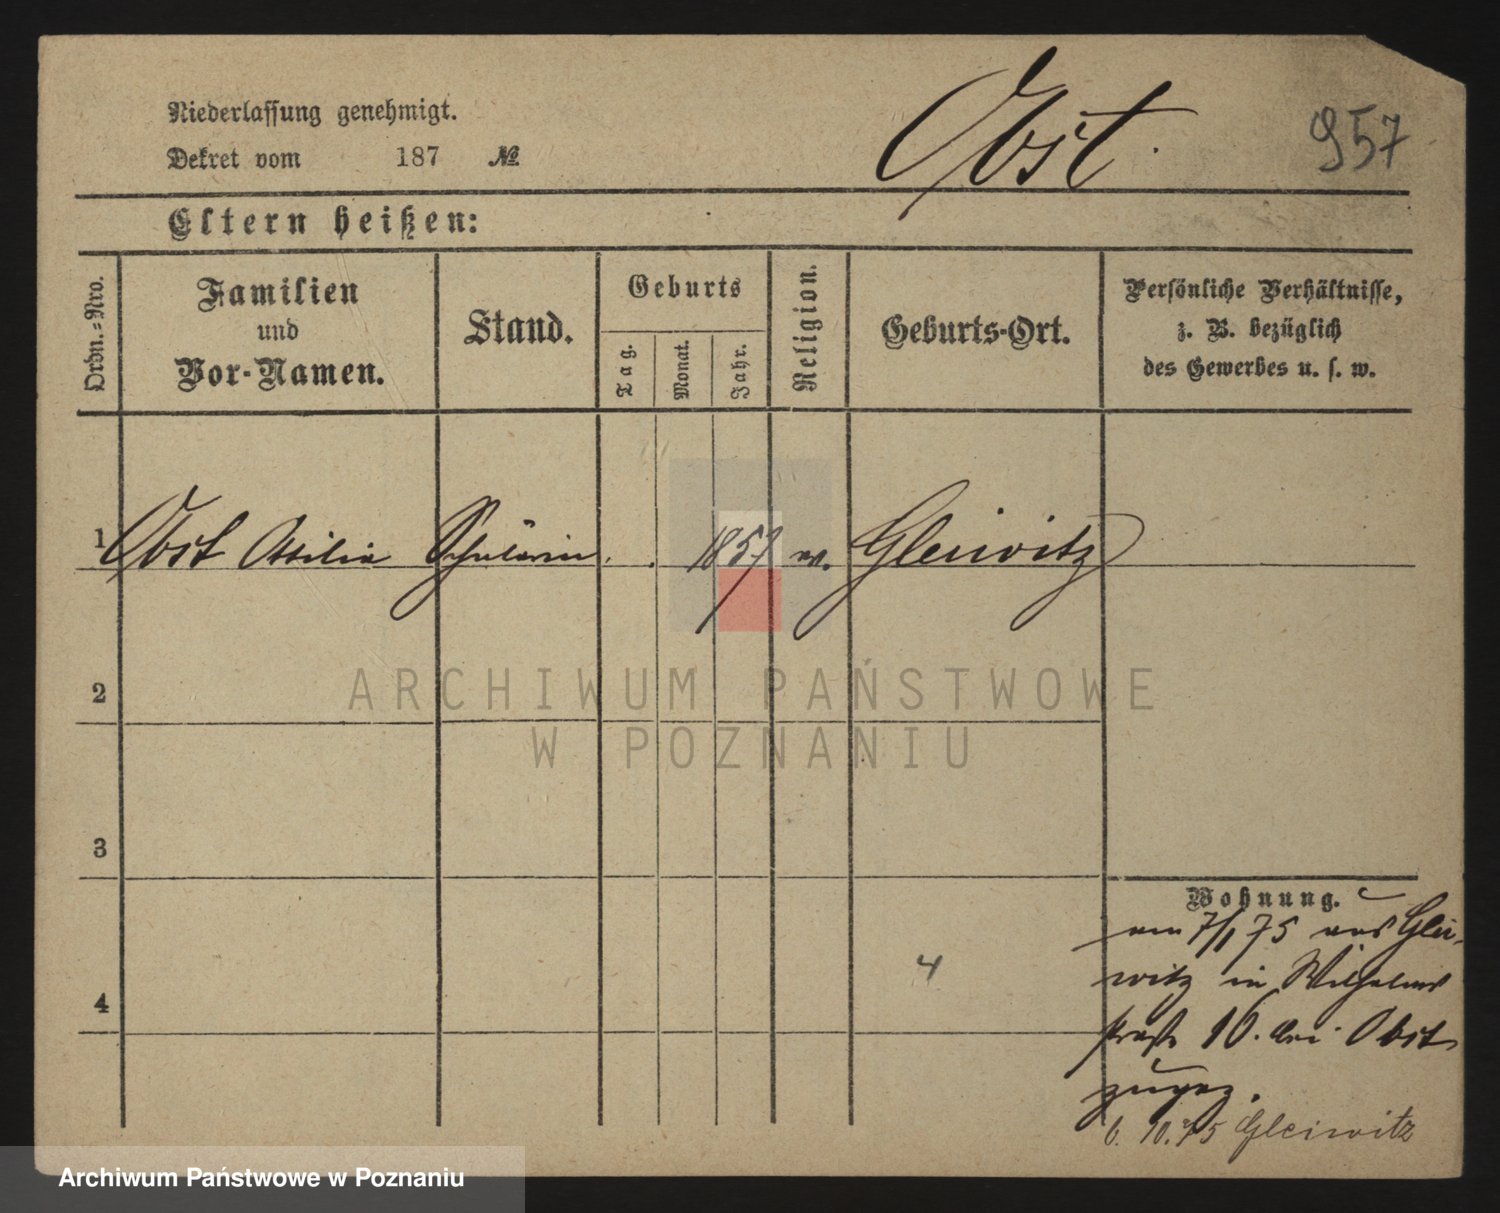 Niederlassung genehmigt.
Dekret vom 187 №
Obst.
957
Eltern heißen:
Ordn.-Nro.
Familien
und
Vor-Namen.
Stand.
Geburts
Tag.
Monat.
Jahr.
Religion.
Geburts-Ort.
Persönliche Verhältnisse,
z. B. bezüglich
des Gewerbes u. s. w.
1 Obst Ottilie Schülerin. 1857 Gleiwitz
2
3
4
4
Wohnung.
am 7/1 75 aus Glei-
witz in Wilhelms
straße 16. bei Obst
zugez.
6. 10. 75 Gleiwitz
ARCHIWUM PAŃSTWOWE
W POZNANIU
Archiwum Państwowe w Poznaniu